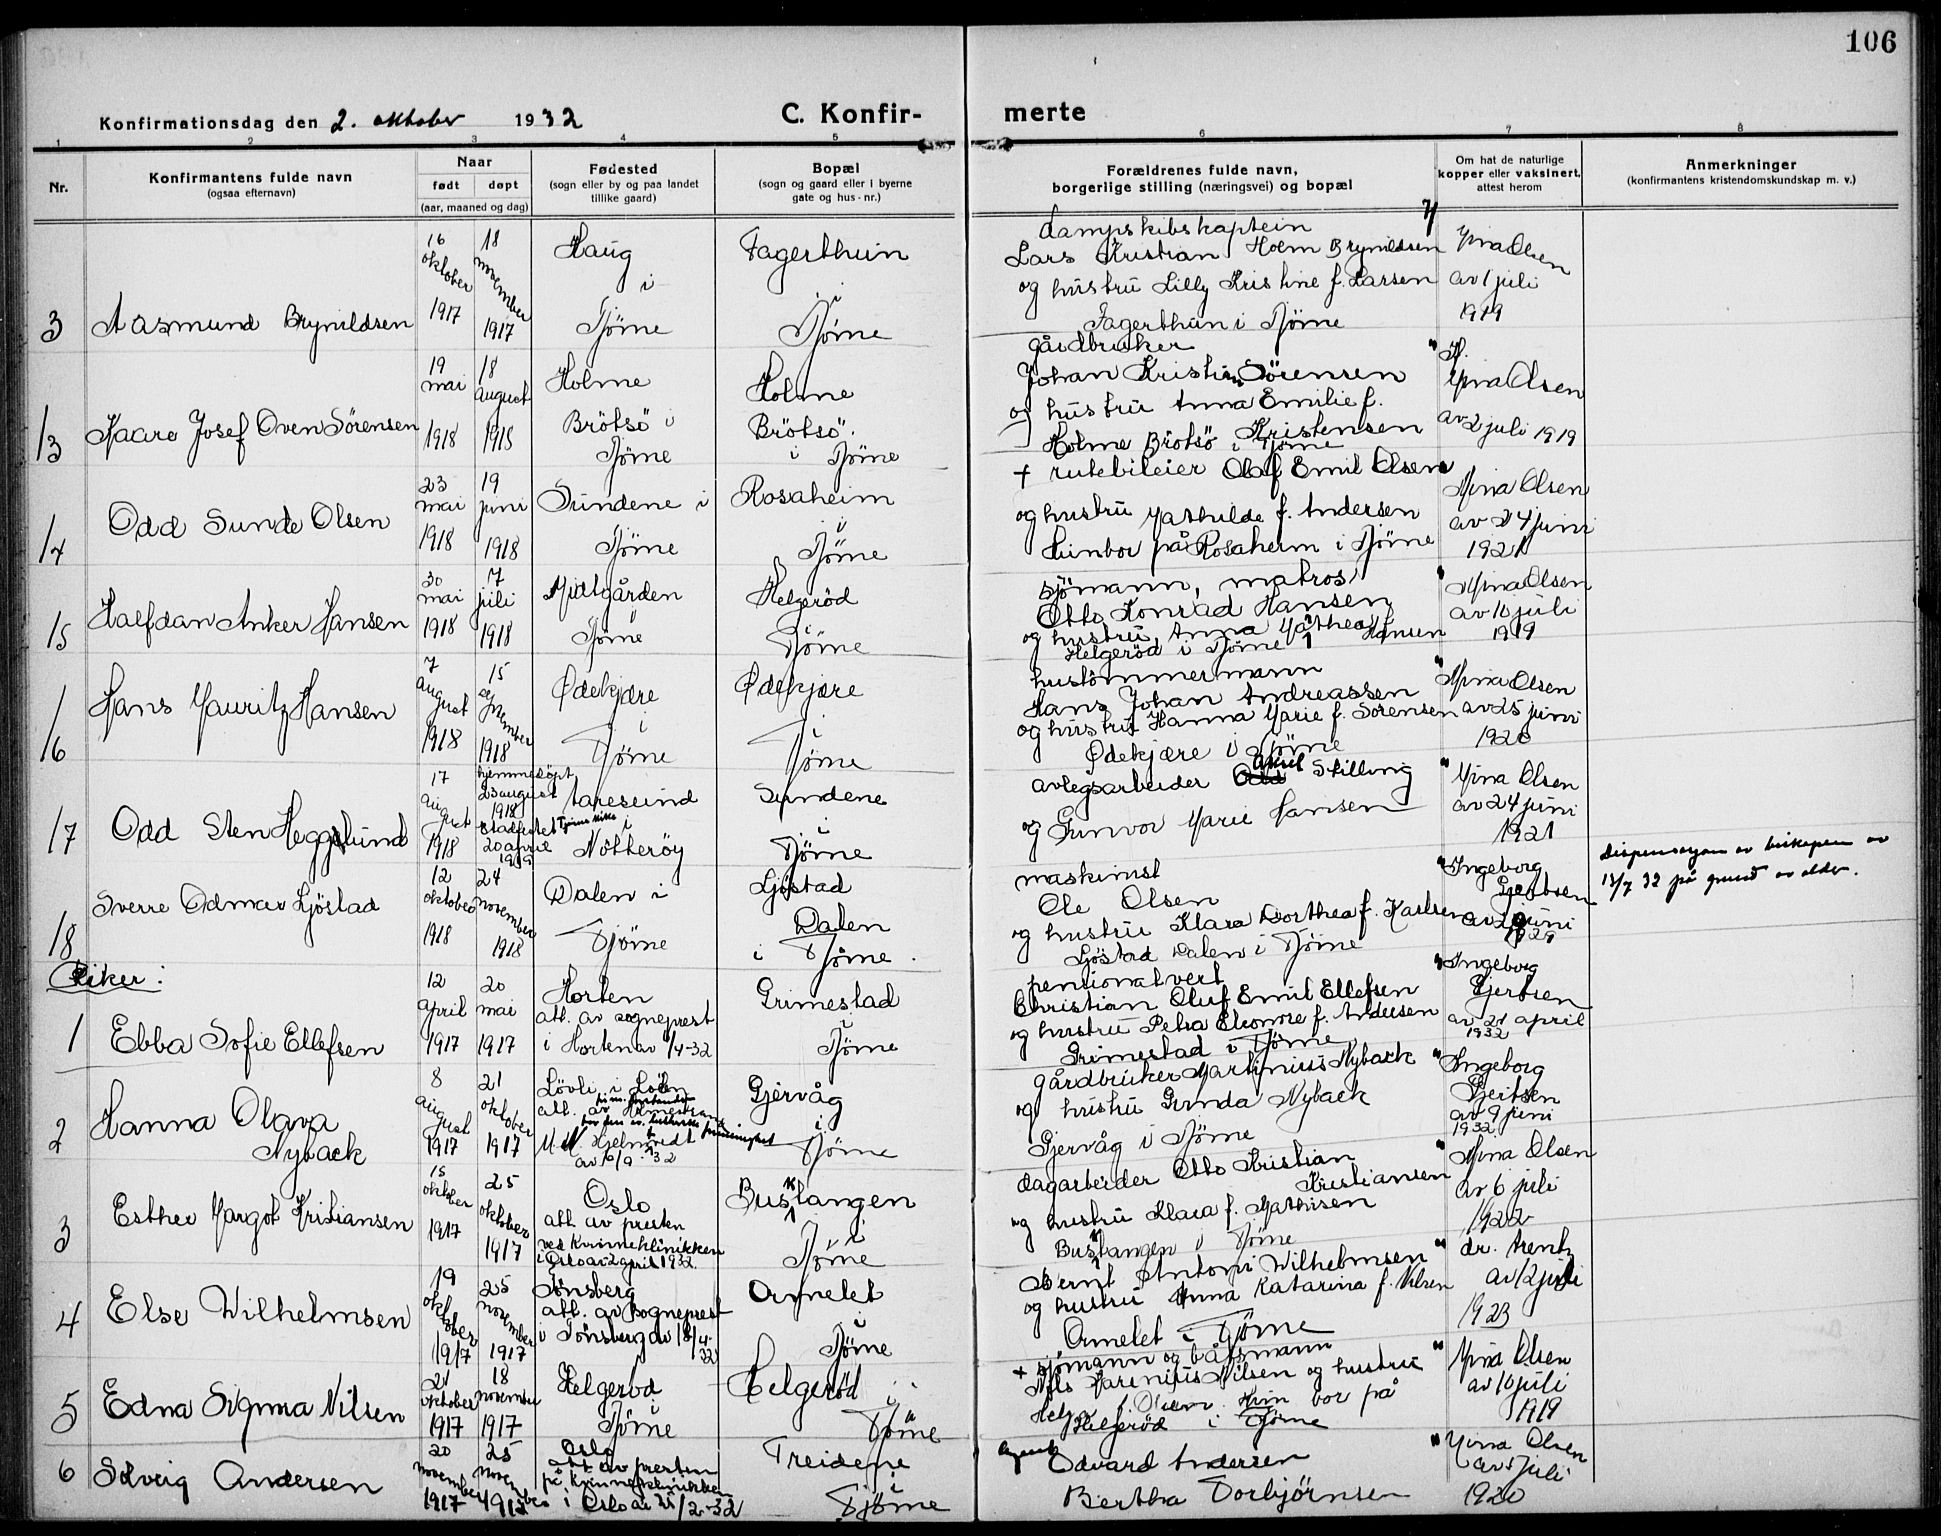 106
Konfirmationsdag den 2. oktober 1932
C. Konfir-
merte
1 2 3 4 5 6 7 8
Nr.
Konfirmantens fulde navn
(ogsaa efternavn)
Naar
født døpt
(aar, maaned og dag)
Fødested
(sogn eller by og paa landet
tillike gaard)
Bopæl
(sogn og gaard eller i byerne
gate og hus-nr.)
Forældrenes fulde navn,
borgerlige stilling (næringsvei) og bopæl
Om hat de naturlige
kopper eller vaksinert,
attest herom
Anmerkninger
(konfirmantens kristendomskundskap m. v.)
3
Aasmund Brynildsen
16 oktober 1917
18 november 1917
Haug
i
Tjöme
Fagerthun
i
Tjöme
dampskibskaptein
Lars Kristian Holm Brynildsen
og hustru Lilly Kristine f. Larsen
Fagerthun i Tjöme
Mina Olsen
av 1 juli
1919
13
Kaare Josef Oven Sörensen
19 mai 1918
18 august 1918
Holme
Brötsö i
Tjöme
Holme
Brötsö
i Tjöme
gårdbruker
Johan Kristian Sörensen
og hustru Anna Emilie f.
Kristensen
Holme Brötsö i Tjöme
Mina Olsen
av 2 juli 1919
14
Odd Sunde Olsen
23 mai 1918
19 juni 1918
Sundene i
Tjöme
Rosaheim
i
Tjöme
+ rutebileier Olaf Emil Olsen
og hustru Mathilde f. Andersen
Hun bor på Rosaheim i Tjöme
Mina Olsen
av 24 juni
1921
15
Halfdan Anker Hansen
30 mai 1918
7 juli 1918
Midtgården
i
Tjöme
Helgeröd
i
Tjöme
sjömann, matros
Otto Konrad Hansen
og hustru Anna Mathea f. Hansen
Helgeröd i Tjöme
Mina Olsen
av 10 juli
1919
16
Hans Mauritz Hansen
7 august 1918
15 september 1918
Ødekjære
i
Tjöme
Ødekjære
i
Tjöme
hustömmermann
Hans Johan Andreassen
og hustru Hanna Marie f. Sörensen
Ødekjære i Tjöme
Mina Olsen
av 25 juni
1920
17
Odd Sten Heggelund
17 august 1918
hjemmedöpt
23 august
1918
stadfestet Tjöme kirke
20 april
1919
i
Nötteröy
Sundene
i
Tjöme
anlegsarbeider Stilling
og Gunvor Marie Hansen
Mina Olsen
av 24 juni
1921
18
Sverre Odmar Ljöstad
12 oktober 1918
24 november 1918
Dalen i
Tjöme
Ljöstad
Dalen
i Tjöme.
maskinist
Ole Olsen
og hustru Klara Dorthea f. Karlsen
Ljöstad Dalen i Tjöme
Ingeborg
Gjertsen
juni
1929
Dispensasjon av biskopen av
13/7 32 på grund av alder.
Piker:
1
Ebba Sofie Ellefsen
12 april 1917
20 mai 1917
Horten
att. av sogneprest
i Horten av 1/4-32
Grimestad
i
Tjöme
pensionatvert
Christian Oluf Emil Ellefsen
og hustru Petra Eleonore f. Andersen
Grimestad i Tjöme
Ingeborg
Gjertsen
av 21 april
1932
2
Hanna Olava
Nyback
8 august 1917
21 oktober 1917
Gjervåg
i
Tjöme
gårdbruker Martinius Nyback
og hustru Gunda Nyback
Gjervåg i Tjöme
Ingeborg
Gjertsen
av 9 juni
1932
3
Esther Margot Kristiansen
15 oktober 1917
25 oktober 1917
Oslo
att. av presten
ved kvinneklinikken
i Oslo av 2 april 1932.
Busktangen
i
Tjöme
dagarbeider Otto Kristian
Kristiansen
og hustru Klara f. Mathisen
Busktangen i Tjöme
Mina Olsen
av 6 juli
1922
4
Else Wilhelmsen
19 oktober 1917
25 november 1917
Tönsberg
att. av sogneprest
i Tönsberg av 18/4-32
Ormelet
i
Tjöme
Bernt Antoni Wilhelmsen
og hustru Anna Katarina f. Nilsen
Ormelet i Tjöme
dr. Arentz
av 12 juli
1923
5
Edna Signora Nilsen
21 oktober 1917
18 november 1917
Helgeröd
i
Tjöme
Helgeröd
i
Tjöme
+ sjömann og båtsmann
Nils Marenius Nilsen og hustru
Helga f. Olsen. Hun bor på
Helgeröd i Tjöme
Mina Olsen
av 10 juli
1919
6
Solveig Andersen
20 november 1917
25 november 1917
Oslo
att av presten
på kvinneklinikken
i Oslo av 25/2-32
Treidene
i
Tjöme
Edvard Andersen
Bertha Torbjörnsen
Mina Olsen
av juli
1920